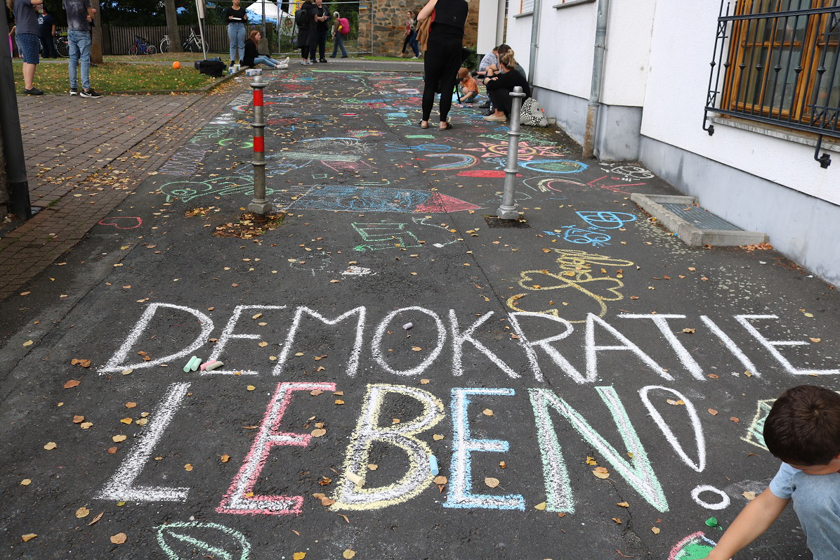 DEMOKRATIE
LEBEN!